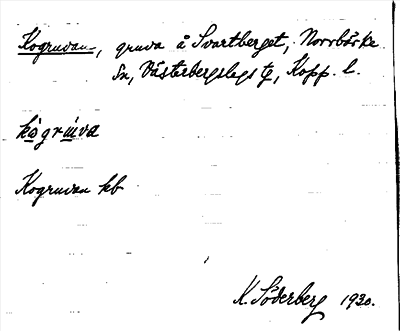 Kogruvan, gruva å Svartberget, Norrbärke
Sn, Västerbergslags tg, Kopp. l.
kògrúva
Kogruvan kb
K. Söderberg 1930.